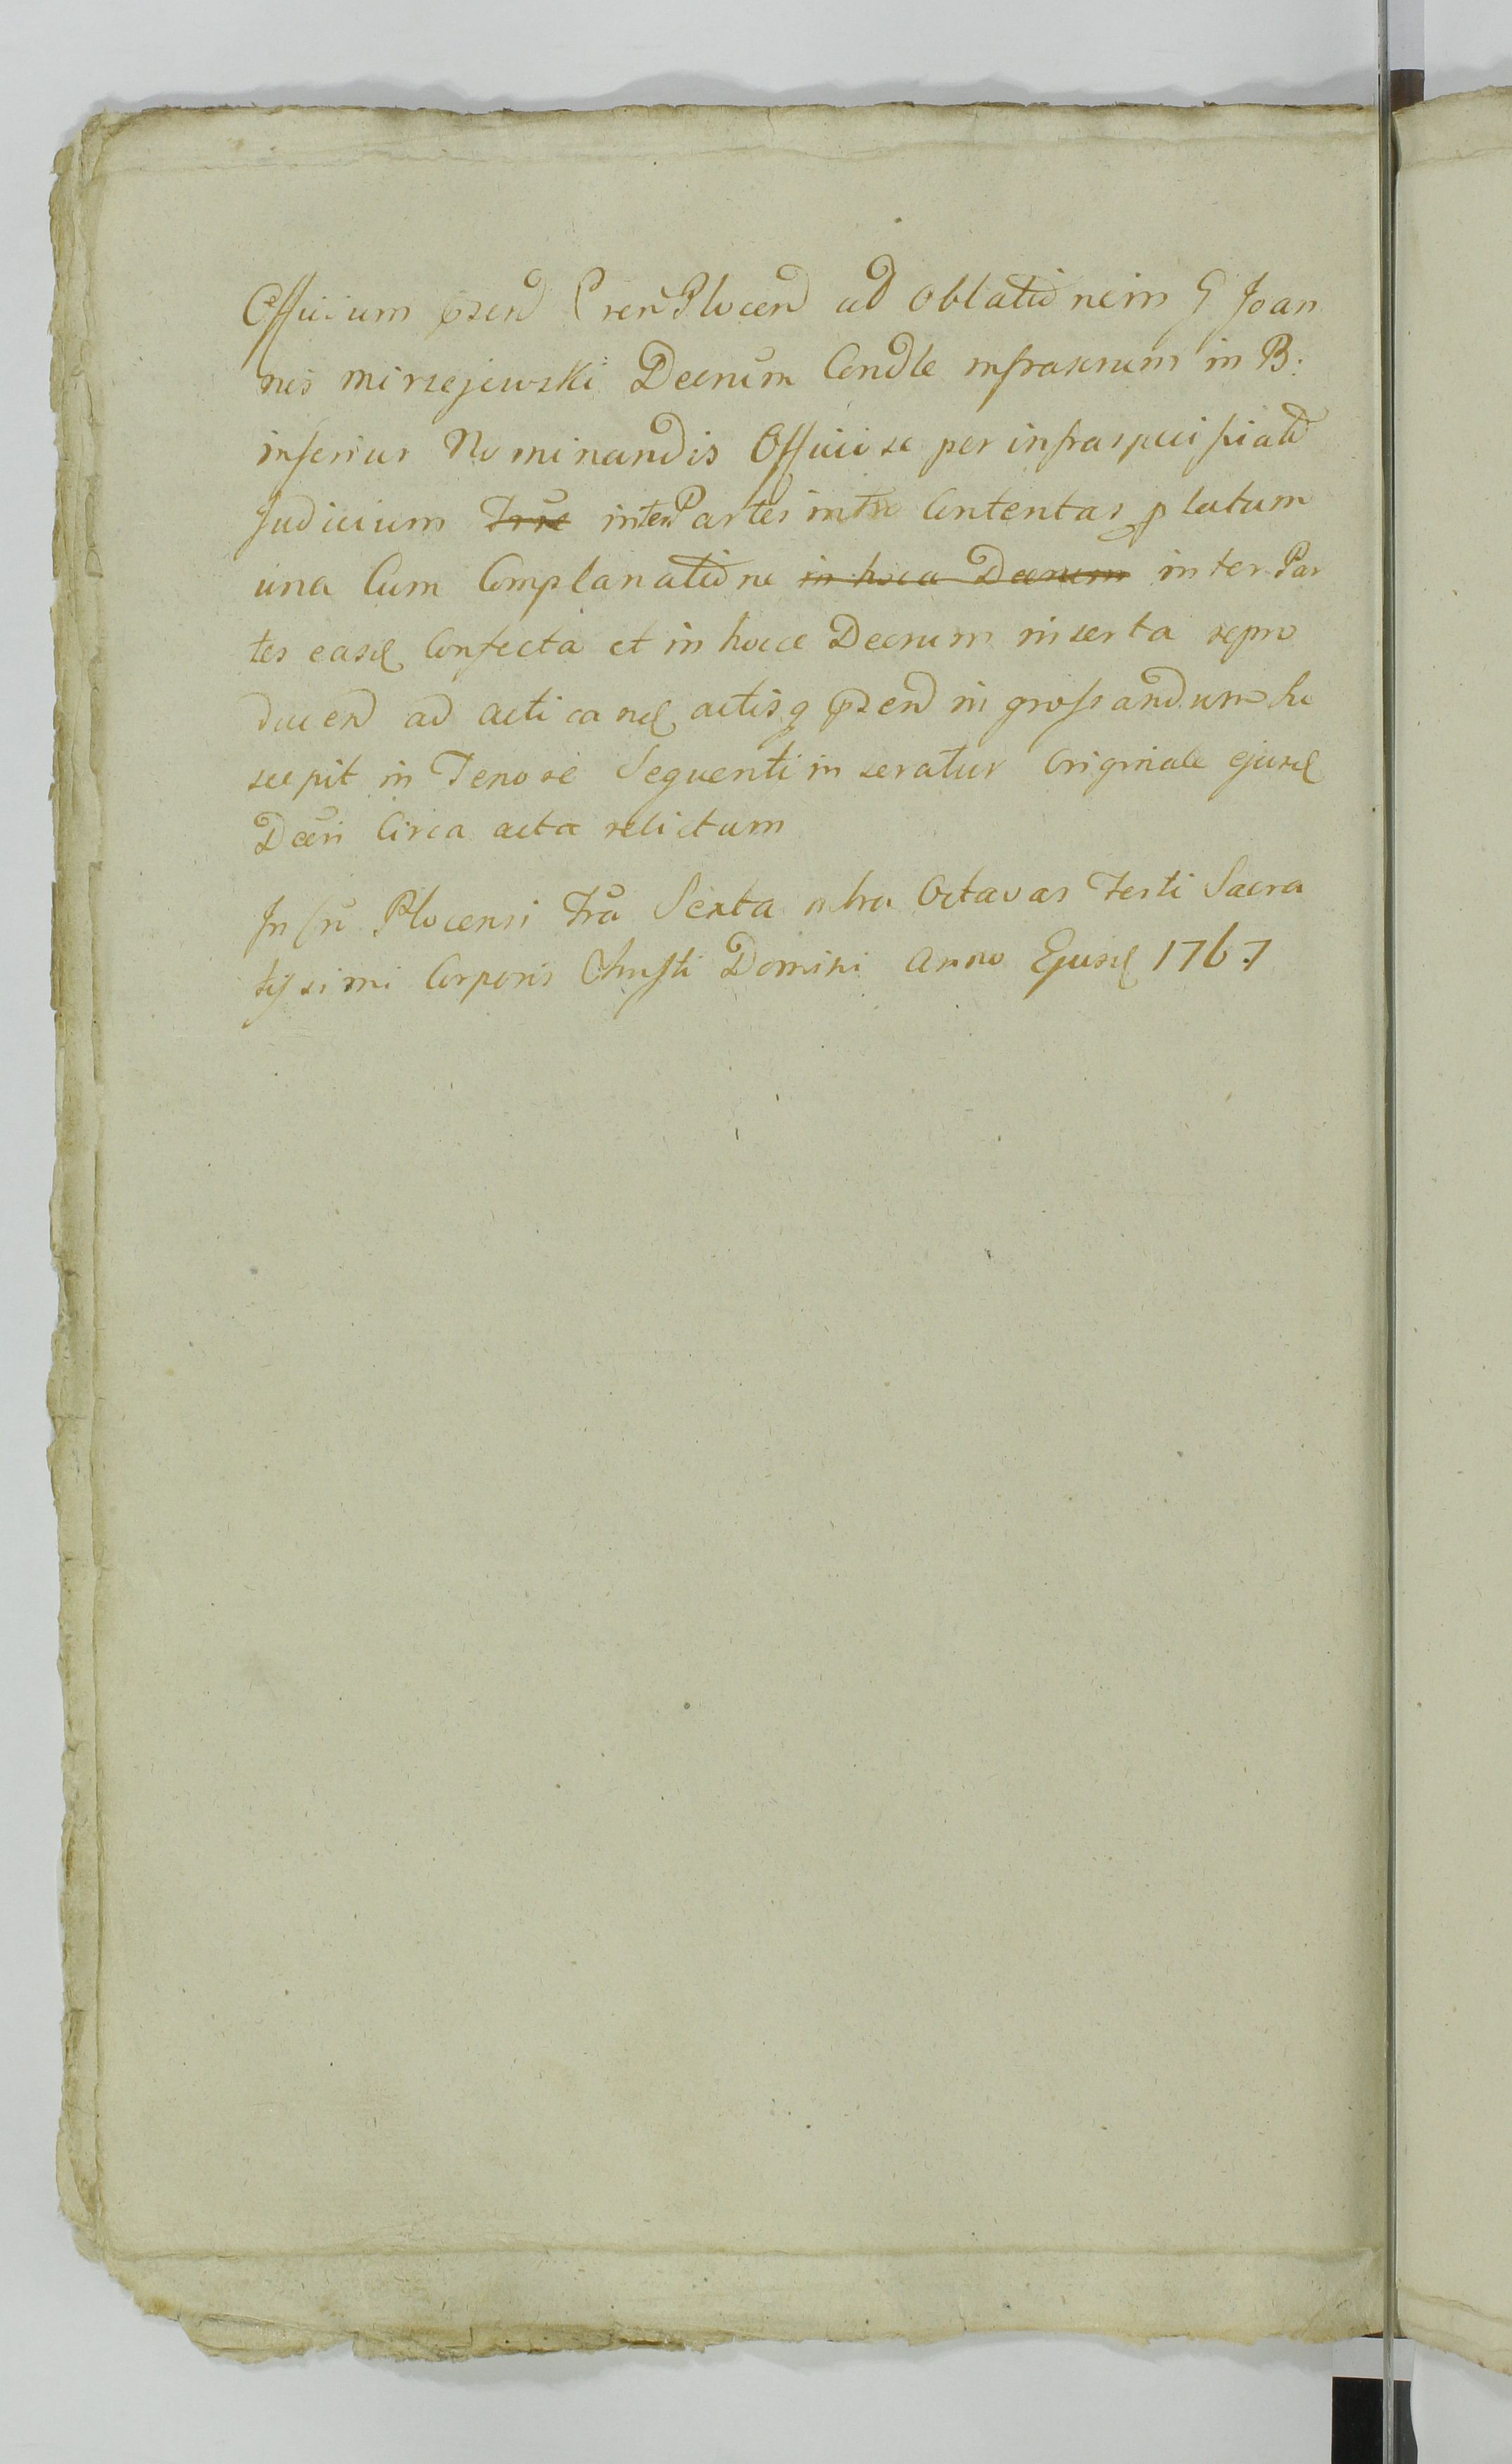 Officium pżend Cren Plocen ad Oblationem G Joan
nes Mirzejewski Decrum Condle infrascrum in B:
inferius Nominandis Officiose per infraspecificatu
Judicium inter Partes intro Contentas platum
una Cum Complanatione in hocce Decrum inter Par
tes easd Confecta et in hocce Decrum inserta repro
ducen ad acticand actisq pżend ingrossandum su
scepit in Tenore Sequenti inseratur Originale ejusd
Decri Circa acta relictum
In Cri Plocensi Fra Sexta intra Octavas Festi Sacra
tissimi Corporis Christi Domini Anno Ejusd 1767